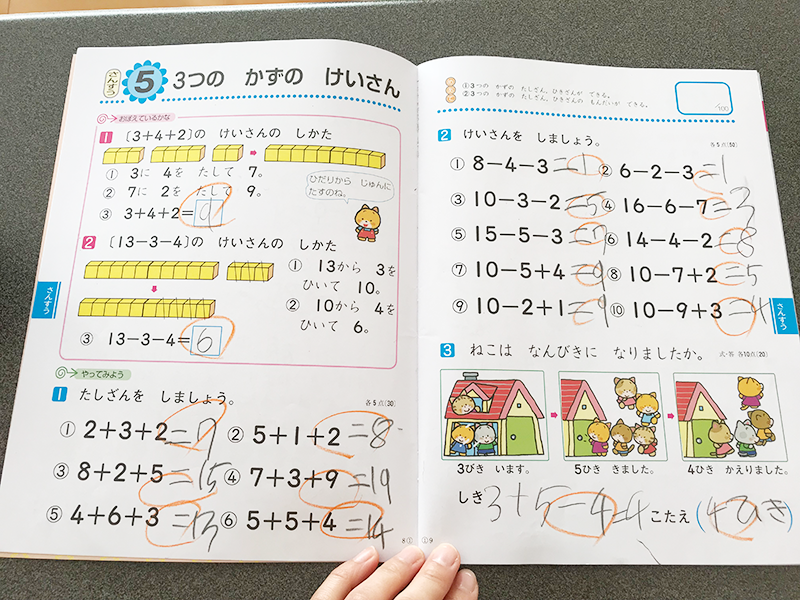 さんすう
5 3つの かずの けいさん
おぼえているかな
1 〔3+4+2〕の けいさんの しかた
① 3に 4を たして 7。
② 7に 2を たして 9。
③ 3+4+2=9
ひだりから じゅんに
たすのね。
2 〔13-3-4〕の けいさんの しかた
① 13から 3を
ひいて 10。
② 10から 4を
ひいて 6。
③ 13-3-4=6
さんすう
やってみよう
1 たしざんを しましょう。
各5点(30)
① 2+3+2=7 ② 5+1+2=8
③ 8+2+5=15 ④ 7+3+9=19
⑤ 4+6+3=13 ⑥ 5+5+4=14
8①
①3つの かずの たしざん、ひきざんが できる。
②3つの かずの たしざん、ひきざんの もんだいが できる。
/100
2 けいさんを しましょう。
各5点(50)
① 8-4-3=1 ② 6-2-3=1
③ 10-3-2=5 ④ 16-6-7=3
⑤ 15-5-3=7 ⑥ 14-4-2=8
⑦ 10-5+4=9 ⑧ 10-7+2=5
⑨ 10-2+1=9 ⑩ 10-9+3=4
さんすう
3 ねこは なんびきに なりましたか。
式・答 各10点(20)
3びき います。 5ひき きました。 4ひき かえりました。
しき 3+5-4=4 こたえ (4ひき)
①9